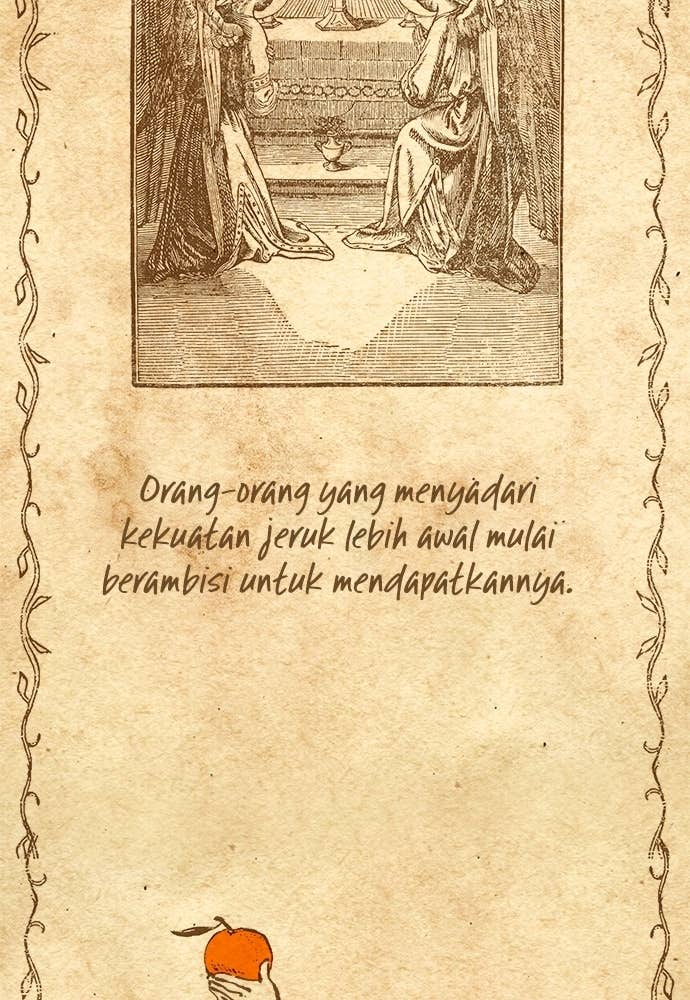 Orang-orang yang menyadari
kekuatan jeruk lebih awal mulai
berambisi untuk mendapatkannya.